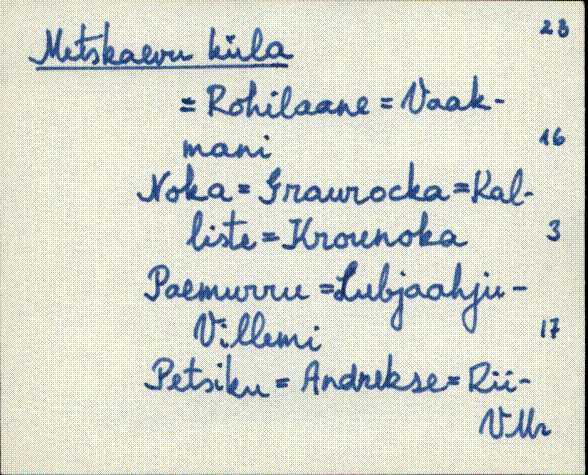 23
Metskaevu küla
= Rohilaane = Vaak-
mani
16
Noka = Graurocka = Kal-
liste = Krounoka
3
Paemurru = Lubjaahju-
Villemi
17
Petsiku = Andrekse = Rii-
VMr